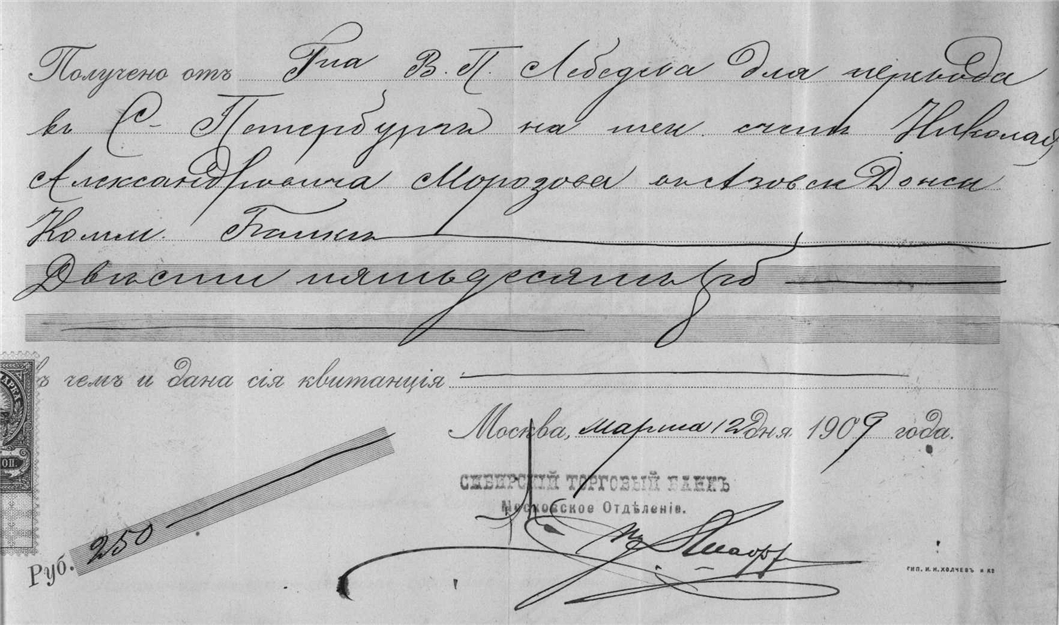 Получено отъ Гна В. П. Лебедева для перевода
въ С-Петербургъ на тек. счетъ Николая
Александровича Морозова въ Азовск Донск
Комм. Банкъ
Двѣсти пятьдесятъ рб
въ чемъ и дана сія квитанція
Москва, марта 12 дня 1909 года.
СИБИРСКІЙ ТОРГОВЫЙ БАНКЪ
Московское Отдѣленіе.
Руб. 250
ТИП. И. И. ХОЛЧЕВЪ и Ко
МАРКА
КОП.